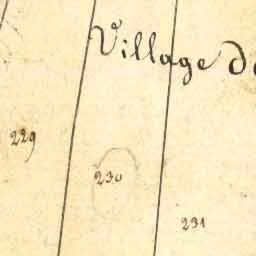 Village de
229
230
231